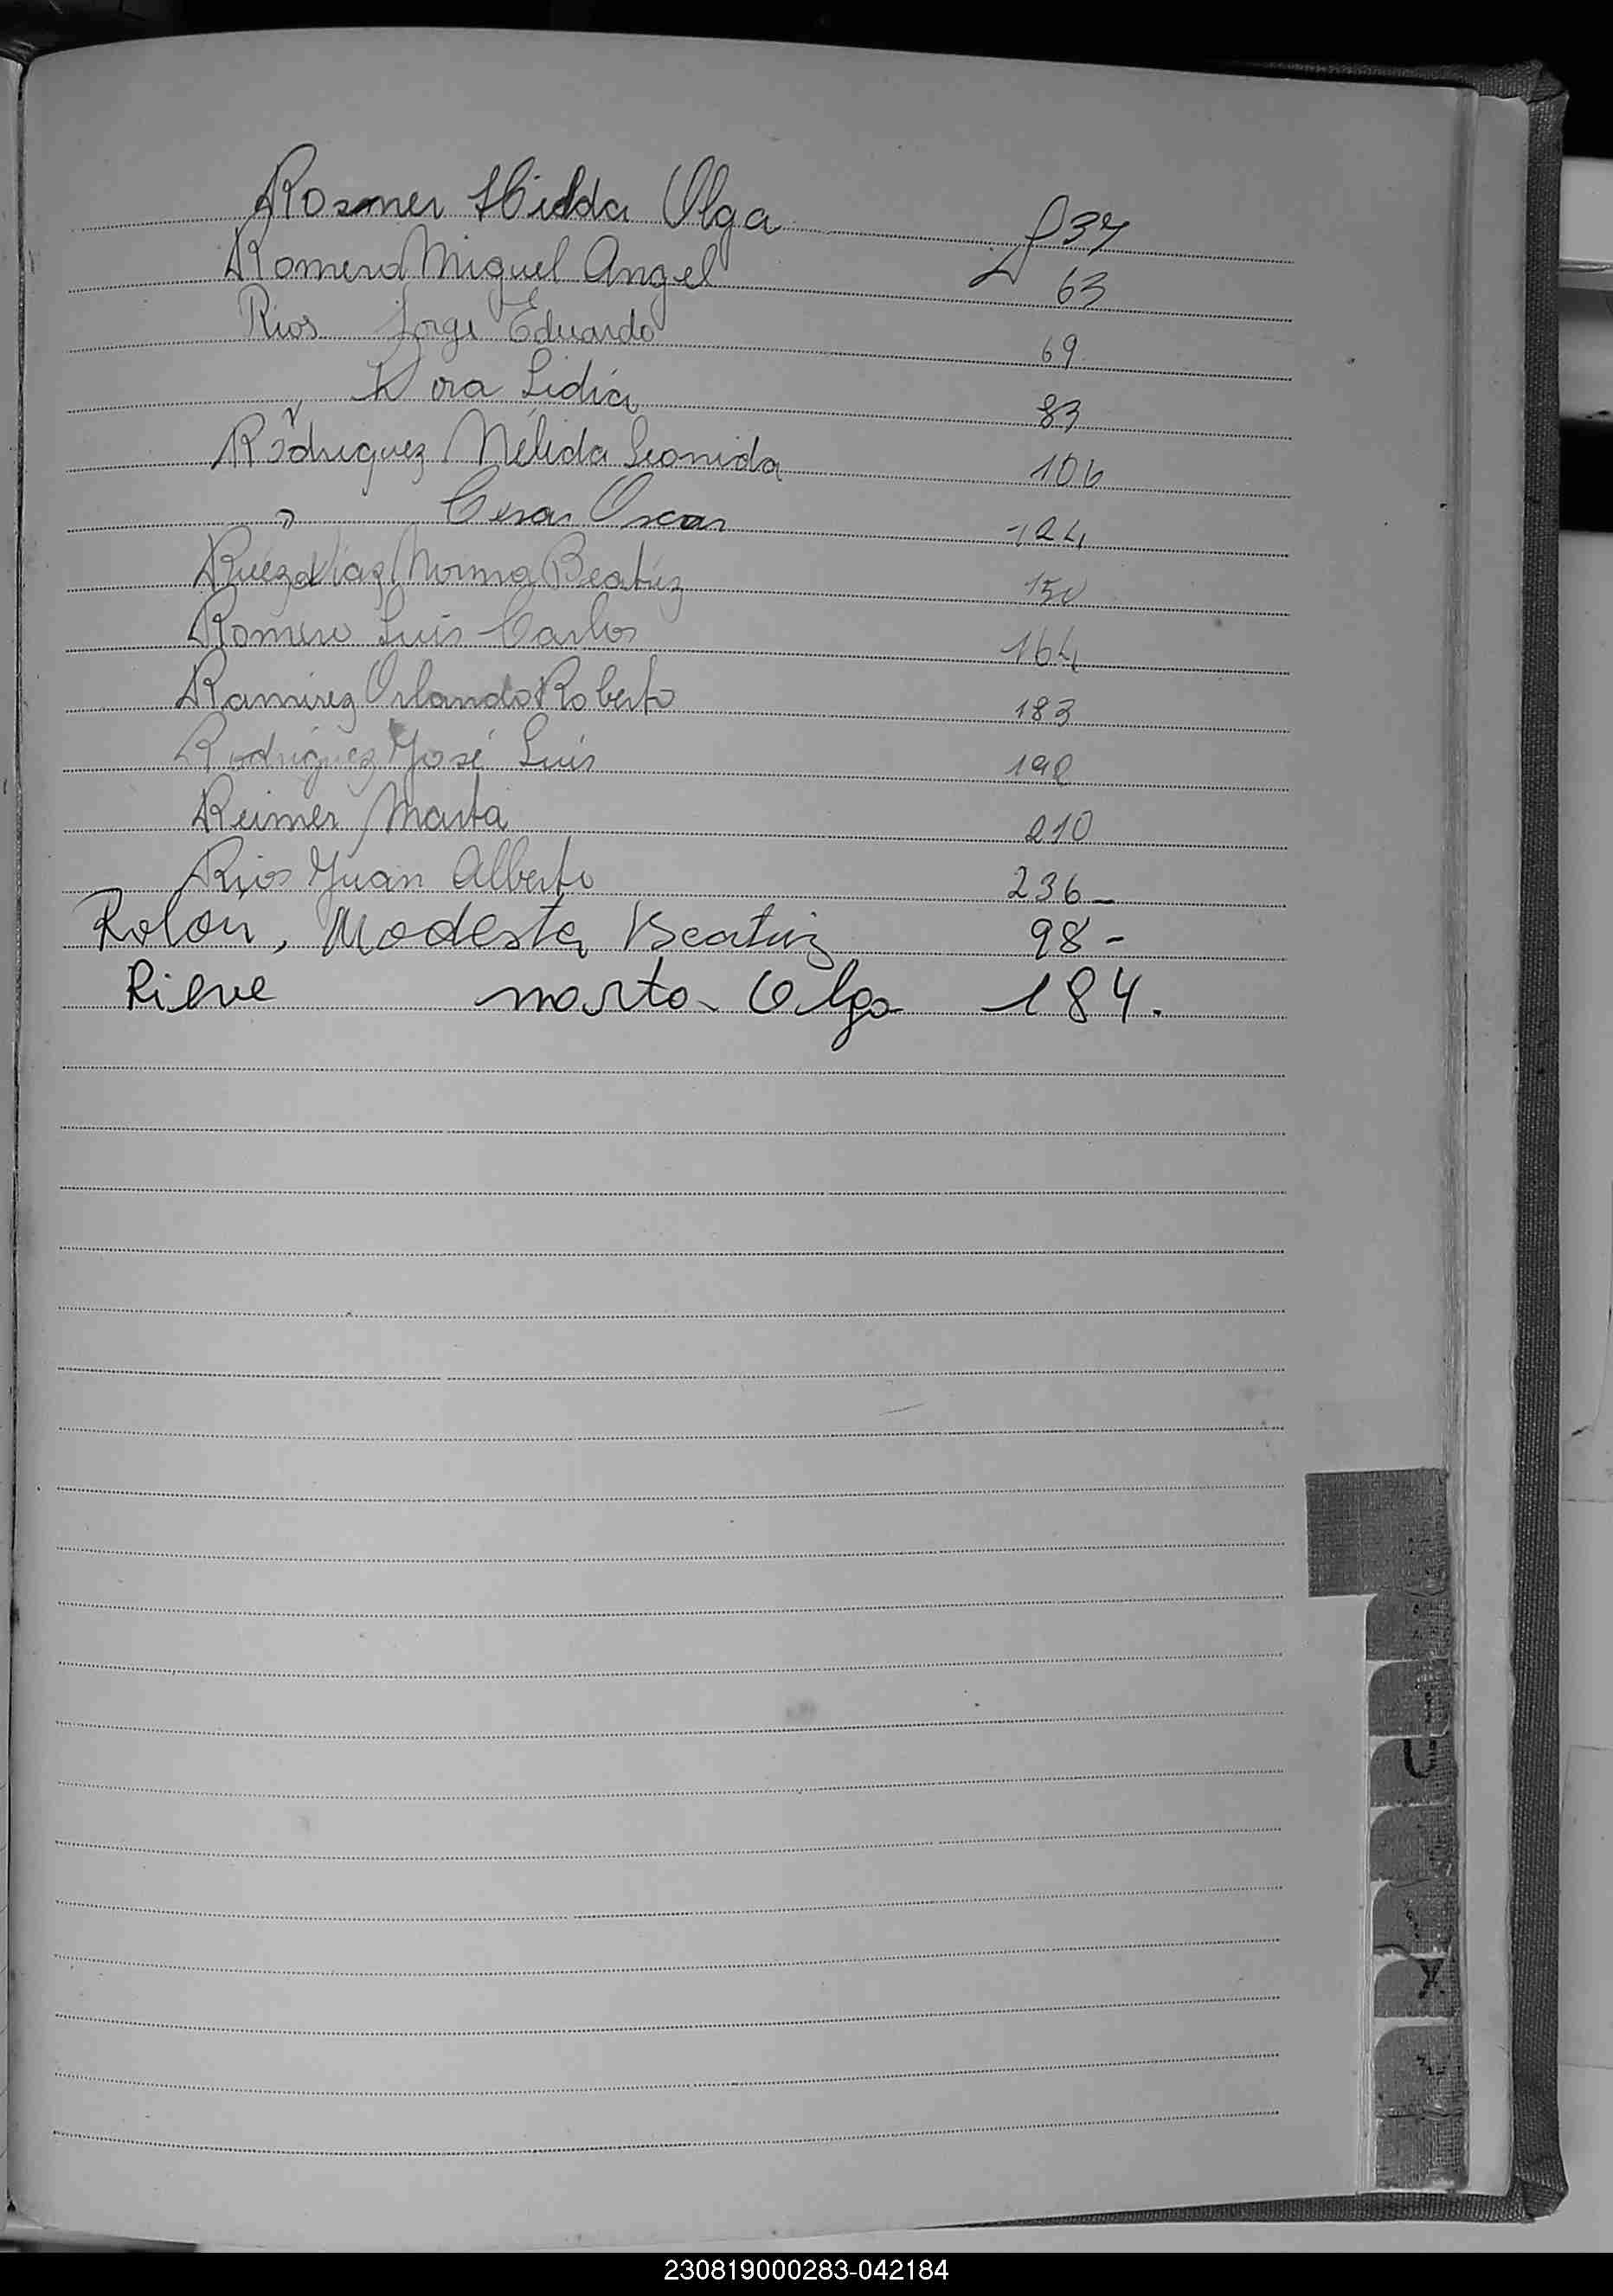 Rosmer Hilda Olga f 37
Romero Miguel Angel 63
Rios Jorge Eduardo 69
" Dora Lidia 83
Rodriguez Nélida Leonida 106
" Cesar Oscar 124
Ruizdiaz Norma Beatriz 150
Romero Luis Carlos 164
Ramirez Orlando Roberto 183
Rodriguez José Luis 198
Reimer Marta 210
Rios Juan Alberto 236-
Rolón, Modesta Beatriz 98-
Rieve Marta Olga 184.
230819000283-042184